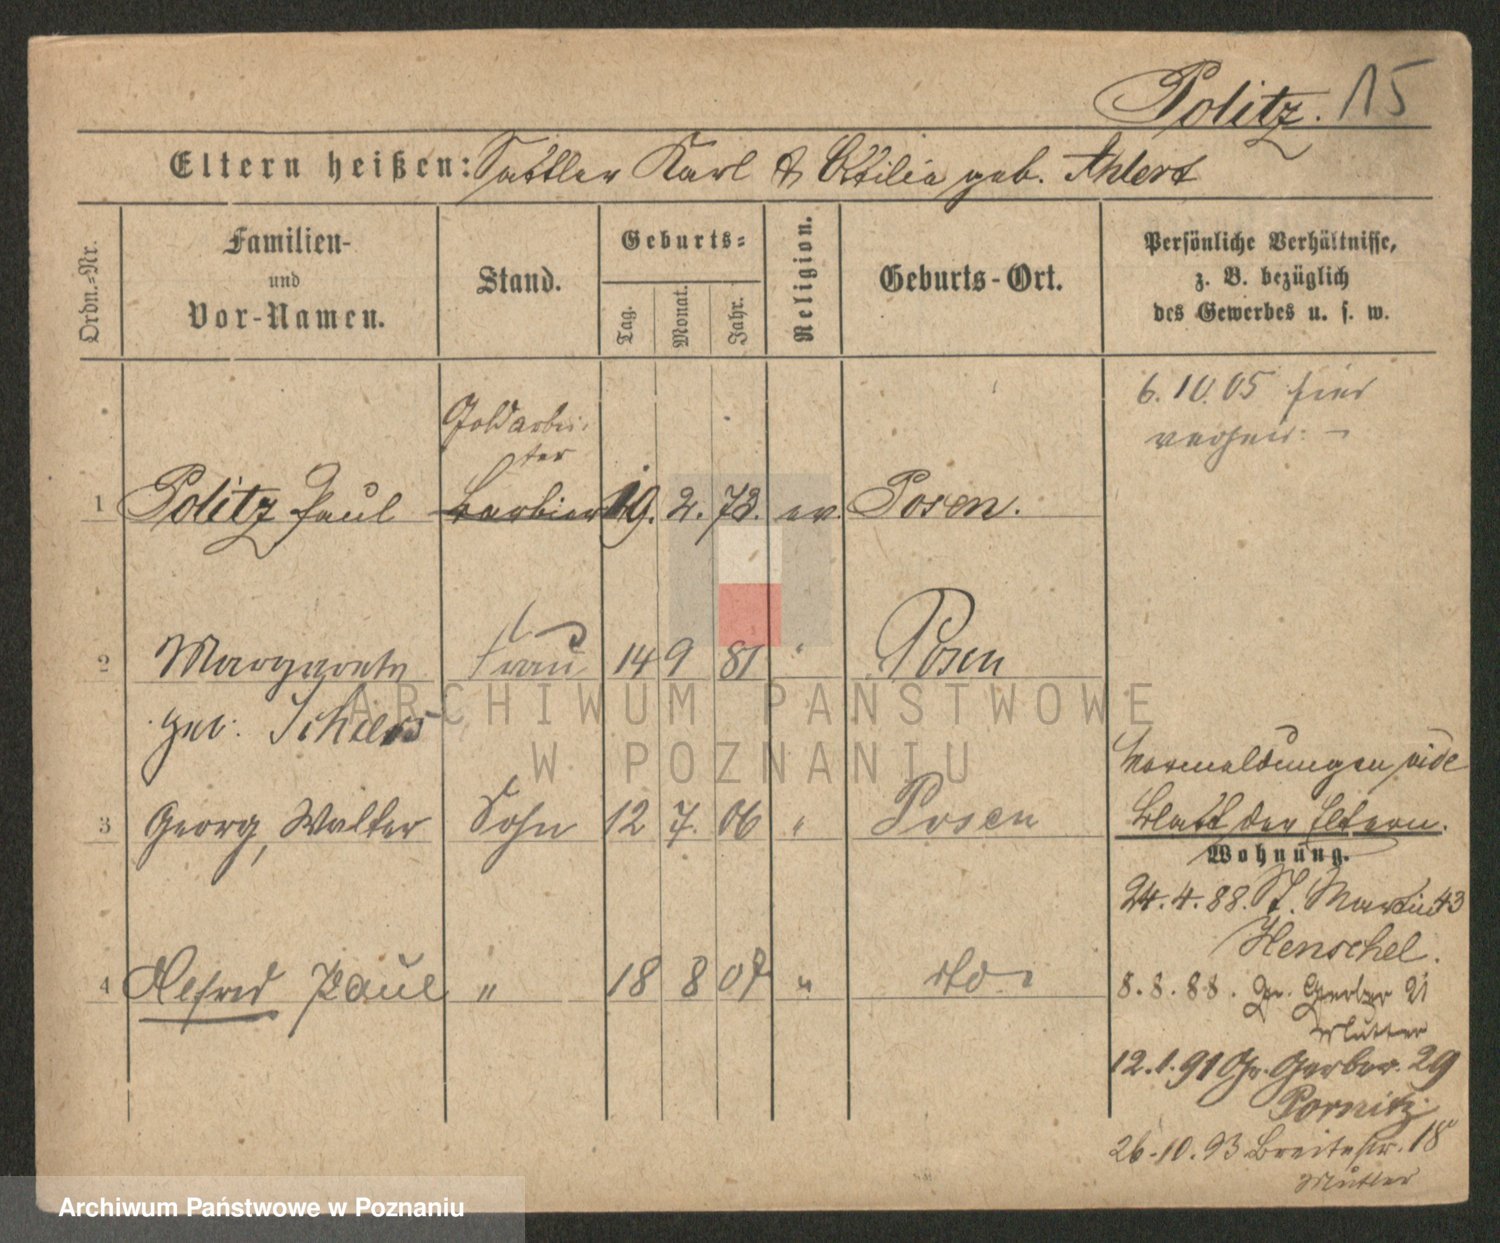 Politz. 15
Eltern heißen: Sattler Karl & Ottilie geb. Ahlert
Ordn.-Nr.
Familien-
und
Vor-Namen.
Stand.
Geburts-
Tag.
Monat.
Jahr.
Religion.
Geburts-Ort.
Persönliche Verhältnisse,
z. B. bezüglich
des Gewerbes u. s. w.
6.10.05 hier
verheir:
Goldarbei-
ter
1 Politz Paul Barbier 19. 2. 73. ev. Posen.
2 Margarete Frau 14 9 81 " Posen
geb.
3 Georg, Walter Sohn 12 7. 06 " Posen
4 Alfred Paul " 18 8 07 " dto.
Vormeldungen vide
Blatt der Eltern.
Wohnung.
24.4.88. St. Martin 43
Henschel.
8.8.88. Gr. Gerber 21
Mutter
12.1.91 Gr. Gerber. 29
26.10.93 Breitestr. 18
Mutter
ARCHIWUM PAŃSTWOWE
W POZNANIU
Archiwum Państwowe w Poznaniu